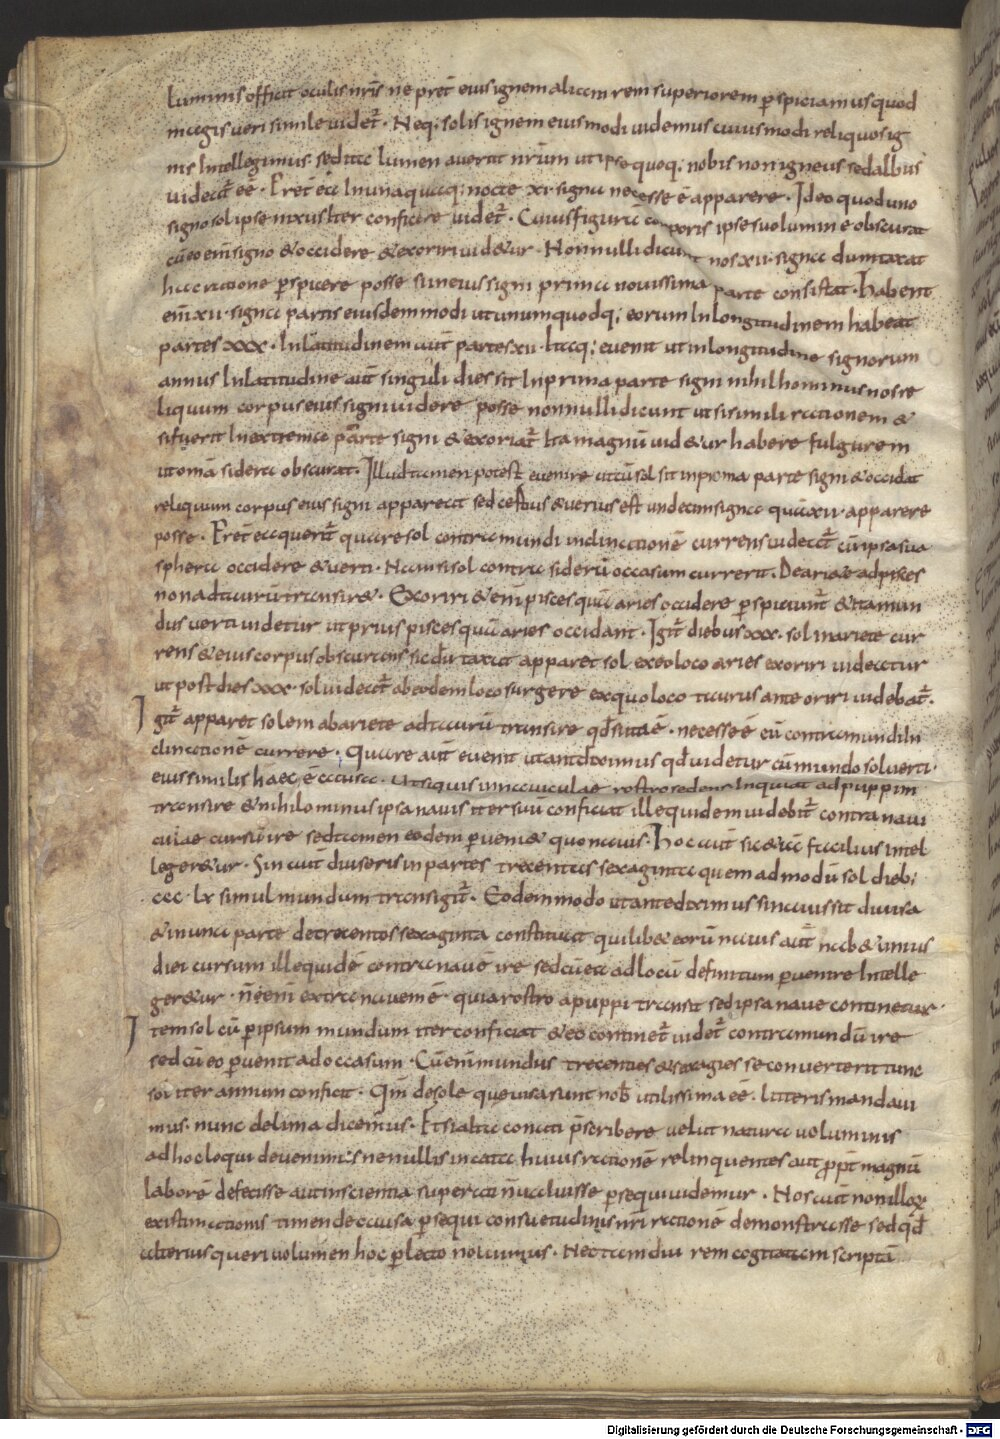 luminis officit oculis nr̄is ne pret̄ eius ignem aliam rem superiorem p̱spiciamus quod
magis veri simile videt᷑. Neq; solis ignem eiusmodi videmus cuiusmodi reliquos ig
nis Intellegimus. sed ita lumen avertit nr̄um ut ipse quoq; nobis non igneus sed albus
videat᷑ eē. Pret̄ ea In una quaq; nocte xi signa necesse ē apparere. Ideo quod uno
signo sol ipse nixus Iter conficere videt᷑. Cuius figura corporis ipse suo lumine obscurat
cū eo em̄ signo & occidere & exoriri vid&ur. Nonnulli dicunt nos xii. signa dumtaxat
hac ratione p̱spicere posse si in eius signi prima novissima parte consistat. Habent
em̄ xii. signa partis eiusdem modi ut unum quodq; eorum In longitudinem habeat
partes xxx. In latitudinem aut̄ partes xii. Itaq; evenit ut in longitudine signorum
annus In latitudine aut̄ singuli dies sit In prima parte signi nihil hominus nos re
liquum corpus eius signi videre posse nonnulli dicunt ut si simili rationem &
si fuerit In extrema parte signi & exoriat᷑ Ita magnū vid&ur habere fulgurem
ut omā sidera obscurat. Illud tamen potest evenire ut cū sol sit in prima parte signi & occidat
reliquum corpus eius signi appareat sed certius & verius est undecim signa quā xii. apparere
posse. Pret̄ ea querit᷑ quare sol contra mundi inclinationē currens videat᷑ cū ipsa sua
sphera occidere & verti. Nam si sol contra siderū occasum currerit. De ari&e ad pisces
non ad taurū transir&. Exoriri & em̄ pisces quā aries occidere p̱spiciunt᷑ & ita mun
dus verti videtur ut prius pisces quā aries occidant. Igit᷑ diebus xxx. sol in ariete cur
rens & eius corpus obscurans sic dū taxat apparet sol ex eo loco aries exoriri videatur
ut post dies xxx. sol videat᷑ ab eodem loco surgere ex quo loco taurus ante oriri videbat᷑.
Igit᷑ apparet solem ab ariete ad taurū transire qd̄ si ita ē. necesse ē eū contra mundi In
clinationē currere. Quare aut̄ evenit ut ante diximus qd̄ videtur cū mundo sol verti.
eius similis haec ē causa. ut si quis in naviculae rostro sedens Inquiat ad puppim
transire & nihilominus ipsa navis iter suū conficiat ille quidem videbit᷑ contra navi
culae cursū ire sed tamen eodem p̱veni& quo navis. Hoc aut̄ sic & iā facilius intel
leger&ur. Sin aut̄ diviseris in partes trecentas sexaginta quem ad modū sol dieb;
ccc. lx simul mundum transigit᷑. Eodem modo ut ante diximus si navis sit divisa
& in una parte de trecentos sexaginta constituat quilib& eorū navis aut̄ hab& unius
diei cursum ille quidē contra navē ire sed cū ea ad locū definitum p̱venire Intelle
ger&ur. n̄ ē enī extra navem ē. quia rostro a puppi transit sed ipsa nave continetur.
Item sol cū p̱ ipsum mundum iter conficiat & eo continet᷑ videt᷑ contra mundū ire
sed cū eo p̱venit ad occasum. Cū enī mundus trecenties & sexagies se converterit tunc
sol iter annum conficit. Qm̄ de sole que visa sunt nob̄ utilissima eē. litteris mandavi
mus. nunc de luna dicemus. Etsi alta concti p̄scribere velut natura voluminis
ad hoc loqui devenimus ne nullis in cata huius rationē relinquentes aut ꝓpt̄ magnū
laborē defecisse aut inscientia superati n̄ valuisse p̱sequi videmur. Nos aut̄ non illoꝝ
existimationis timende causa p̱sequi consuetudinis nr̄i rationē demonstrasse sed qd̄
alterius queri volumen hoc p̱lecto nolumus. Nec tamdiu rem cogitatam scriptā